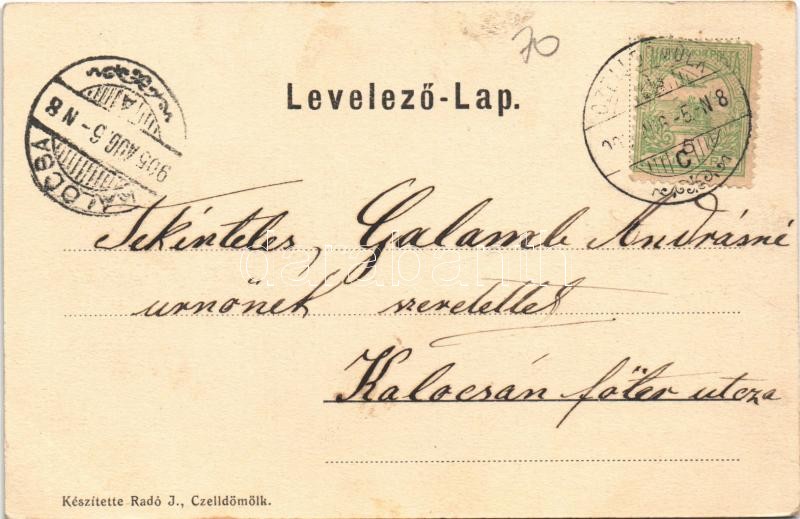 70
Levelező-Lap.
KALOCSA
905 AUG 6 - N 8
A
CZELLDÖMÖLK
- 5. N 8
C
Tekintetes Galamb Andrásné
urnőnek szeretettel
Kalocsán főtér utcza
darabanth
Készítette Radó J., Czelldömölk.